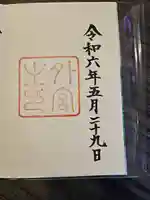 令和六年五月二十九日
外宮之印